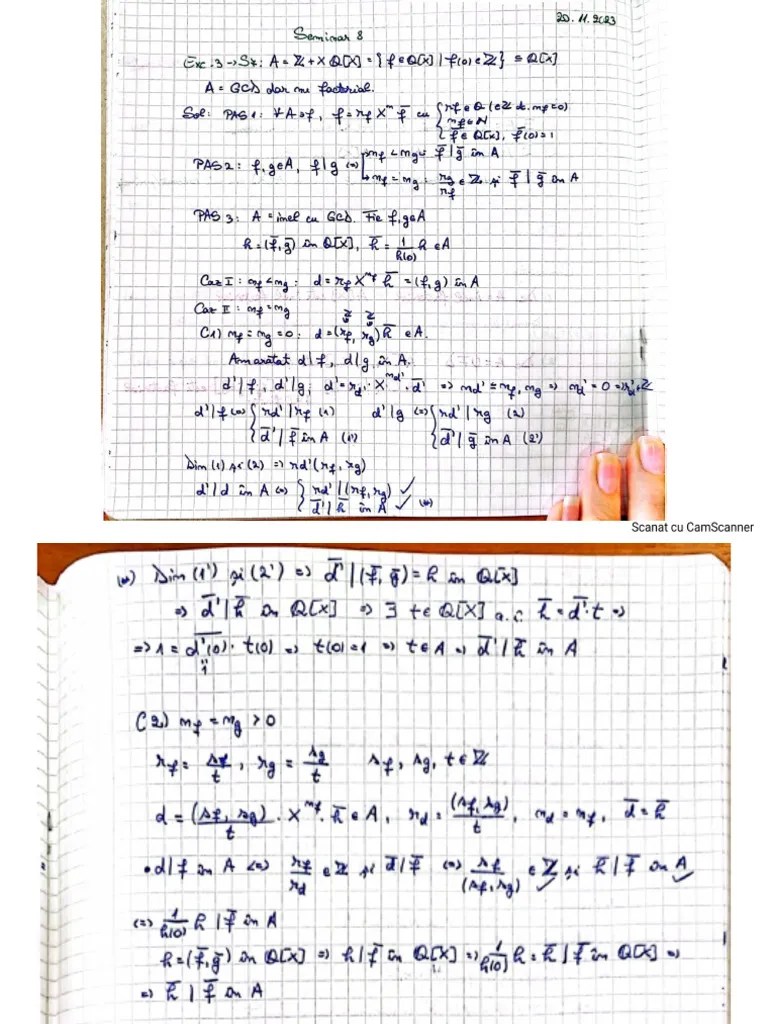 20.11.2023
Seminar 8
Exc. 3 → S7: A = ℤ + XQ[X] = {f ∈ Q[X] | f(0) ∈ ℤ} ≤ Q[X]
A = GCD dar nu factorial.
Sol: PAS 1: ∀ A∋f, f = r_f X^{m_f} f̄ cu { r_f ∈ Q (∈ ℤ dc. m_f = 0)
m_f ∈ N
f̄ ∈ Q[X], f̄(0) = 1
PAS 2: f, g ∈ A, f | g ⇔ m_f < m_g : f̄ | ḡ în A
m_f = m_g : r_g/r_f ∈ ℤ și f̄ | ḡ în A
PAS 3: A = inel cu GCD. Fie f, g ∈ A
h = (f̄, ḡ) în Q[X], h̄ = 1/h(0) h ∈ A
Caz I: m_f < m_g: d = r_f X^{m_f} h̄ = (f, g) în A
Caz II: m_f = m_g
C1) m_f = m_g = 0: d = (r_f, r_g) h̄ ∈ A.
Am arătat d | f, d | g în A.
d' | f, d' | g; d' = r_d' · X^{m_d'} · d̄' ⇒ m_d' ≤ m_f, m_g ⇒ m_d' = 0 ⇒ r_d' ∈ ℤ
d' | f ⇔ { r_d' | r_f (1) d' | g ⇔ { r_d' | r_g (2)
d̄' | f̄ în A (1') d̄' | ḡ în A (2')
Din (1) și (2) ⇒ r_d' | (r_f, r_g)
d' | d în A ⇔ { r_d' | (r_f, r_g) ✓
d̄' | h̄ în A ✓ (*)
Scanat cu CamScanner
(*) Din (1') și (2') ⇒ d̄' | (f̄, ḡ) = h în Q[X]
⇒ d̄' | h̄ în Q[X] ⇒ ∃ t ∈ Q[X] a.î. h̄ = d̄' · t ⇒
⇒ 1 = d̄'(0) · t(0) ⇒ t(0) = 1 ⇒ t ∈ A ⇒ d̄' | h̄ în A
1
C2) m_f = m_g > 0
r_f = s_f/t, r_g = s_g/t s_f, s_g, t ∈ ℤ
d = (s_f, s_g)/t · X^{m_f} · h̄ ∈ A, r_d = (s_f, s_g)/t, m_d = m_f, d̄ = h̄
• d | f în A ⇔ r_f/r_d ∈ ℤ și d̄ | f̄ ⇔ s_f/(s_f, s_g) ∈ ℤ ✓ și h̄ | f̄ în A ✓
⇔ 1/h(0) h | f̄ în A
h = (f̄, ḡ) în Q[X] ⇒ h | f̄ în Q[X] ⇒ 1/h(0) h = h̄ | f̄ în Q[X] ⇒
⇒ h̄ | f̄ în A